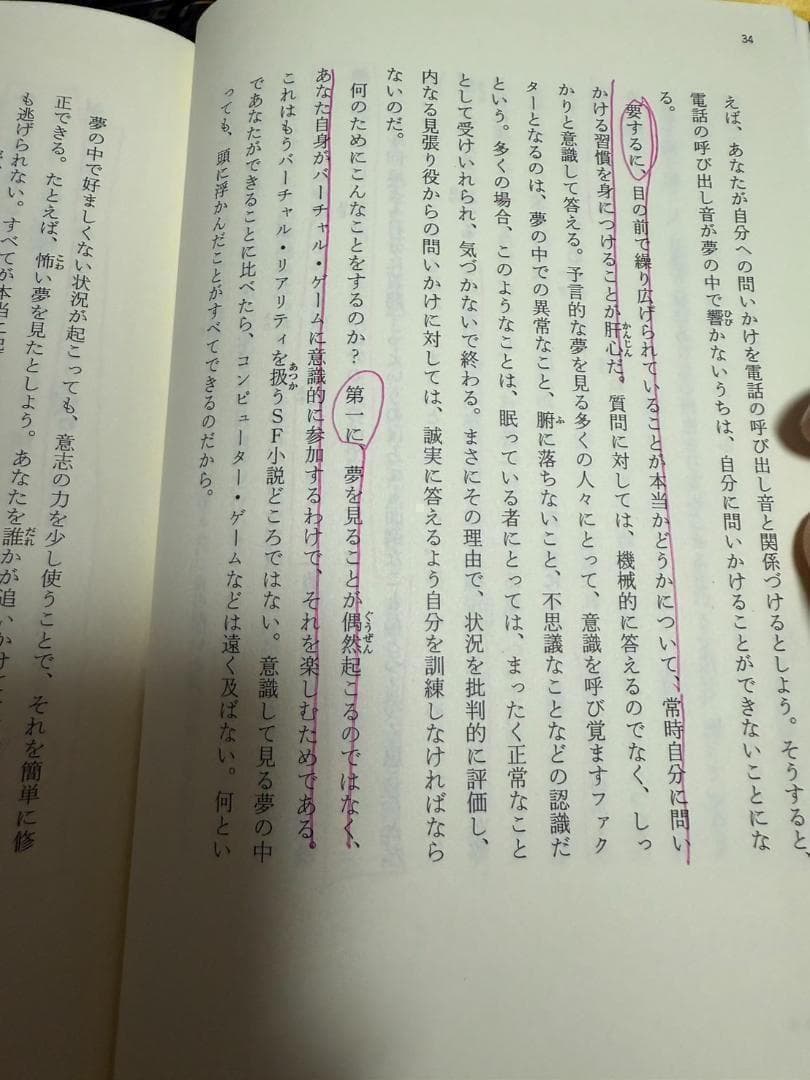 34
えば、あなたが自分への問いかけを電話の呼び出し音と関係づけるとしよう。そうすると、
電話の呼び出し音が夢の中で響かないうちは、自分に問いかけることができないことにな
る。
要するに、目の前で繰り広げられていることが本当かどうかについて、常時自分に問い
かける習慣を身につけることが肝心だ。質問に対しては、機械的に答えるのでなく、しっ
かりと意識して答える。予言的な夢を見る多くの人々にとって、意識を呼び覚ますファク
ターとなるのは、夢の中での異常なこと、腑に落ちないこと、不思議なことなどの認識だ
という。多くの場合、このようなことは、眠っている者にとっては、まったく正常なこと
として受けいれられ、気づかないで終わる。まさにその理由で、状況を批判的に評価し、
内なる見張り役からの問いかけに対しては、誠実に答えるよう自分を訓練しなければなら
ないのだ。
何のためにこんなことをするのか? 第一に、夢を見ることが偶然起こるのではなく、
あなた自身がバーチャル・ゲームに意識的に参加するわけで、それを楽しむためである。
これはもうバーチャル・リアリティを扱うSF小説どころではない。意識して見る夢の中
であなたができることに比べたら、コンピューター・ゲームなどは遠く及ばない。何とい
っても、頭に浮かんだことがすべてできるのだから。
夢の中で好ましくない状況が起こっても、意志の力を少し使うことで、それを簡単に修
正できる。たとえば、怖い夢を見たとしよう。あなたを誰かが追いかけ
も逃げられない。すべてが本当に起